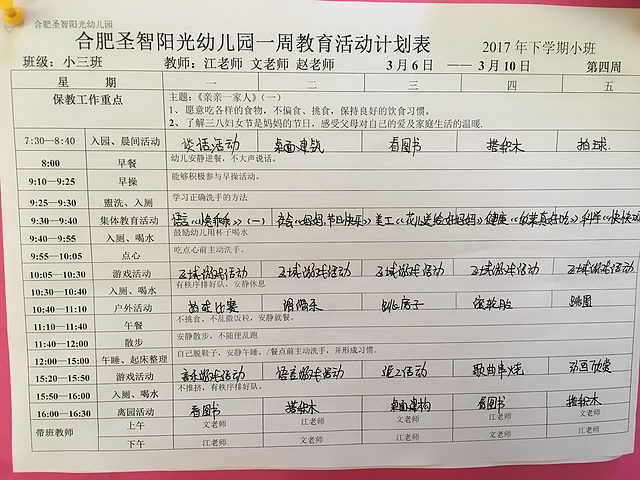 合肥圣智阳光幼儿园
合肥圣智阳光幼儿园一周教育活动计划表
2017 年下学期小班
班级：小三班 教师：江老师 文老师 赵老师 3 月 6 日 —— 3 月 10 日 第四周
星 期 一 二 三 四 五
保教工作重点 主题：《亲亲一家人》（一）
1、愿意吃各样的食物，不偏食、挑食，保持良好的饮食习惯。
2、了解三八妇女节是妈妈的节日，感受母亲对自己的爱及家庭生活的温暖.
7:30—8:40 入园、晨间活动 谈话活动 桌面建筑 看图书 搭积木 拍球.
8:00 早餐 幼儿安静进餐，不大声说话。
9:10—9:25 早操 能够积极参与早操活动。
9:25—9:30 盥洗、入厕 学习正确洗手的方法
9:30—9:40 集体教育活动 语言 （一） 社会《妈妈,节日快乐》 美工《花儿送给好妈妈》 健康 科学
9:40—9:55 入厕、喝水 鼓励幼儿用杯子喝水
9:55—10:05 点心 吃点心前主动洗手。
10:05—10:30 游戏活动 区域游戏活动 区域游戏活动 区域游戏活动 区域游戏活动 区域游戏活动
10:30—10:40 入厕、喝水 有秩序排好队，安静休息
10:40—11:10 户外活动 拍球比赛 滑滑梯 跳房子 滚轮胎 跳圈
11:10—11:40 午餐 不挑食、不乱撒饭粒，安静就餐。
11:40—12:00 散步 安静散步，不随便乱跑
12:00—15:00 午睡、起床整理 自己脱鞋子，安静午睡。/餐点前主动洗手，并形成习惯。
15:20—15:50 游戏活动 音乐游戏活动 语言游戏活动 美工活动 歌曲串烧 动画欣赏
15:50—16:00 入厕、喝水 不推挤，有秩序排好队。
16:00—16:30 离园活动 看图书 搭积木 桌面建构 看图书 搭积木
带班教师 上午 文老师 江老师 文老师 江老师 文老师
下午 江老师 文老师 江老师 文老师 江老师